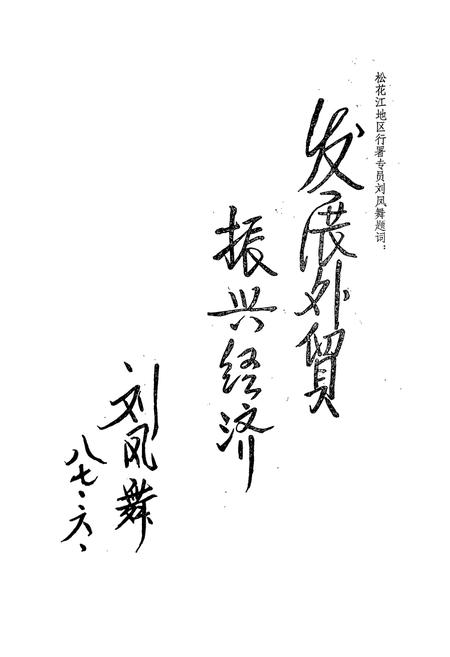 松花江地区行署专员刘凤舞题词：
发展外貿
振兴经济
刘凤舞
八七、六、